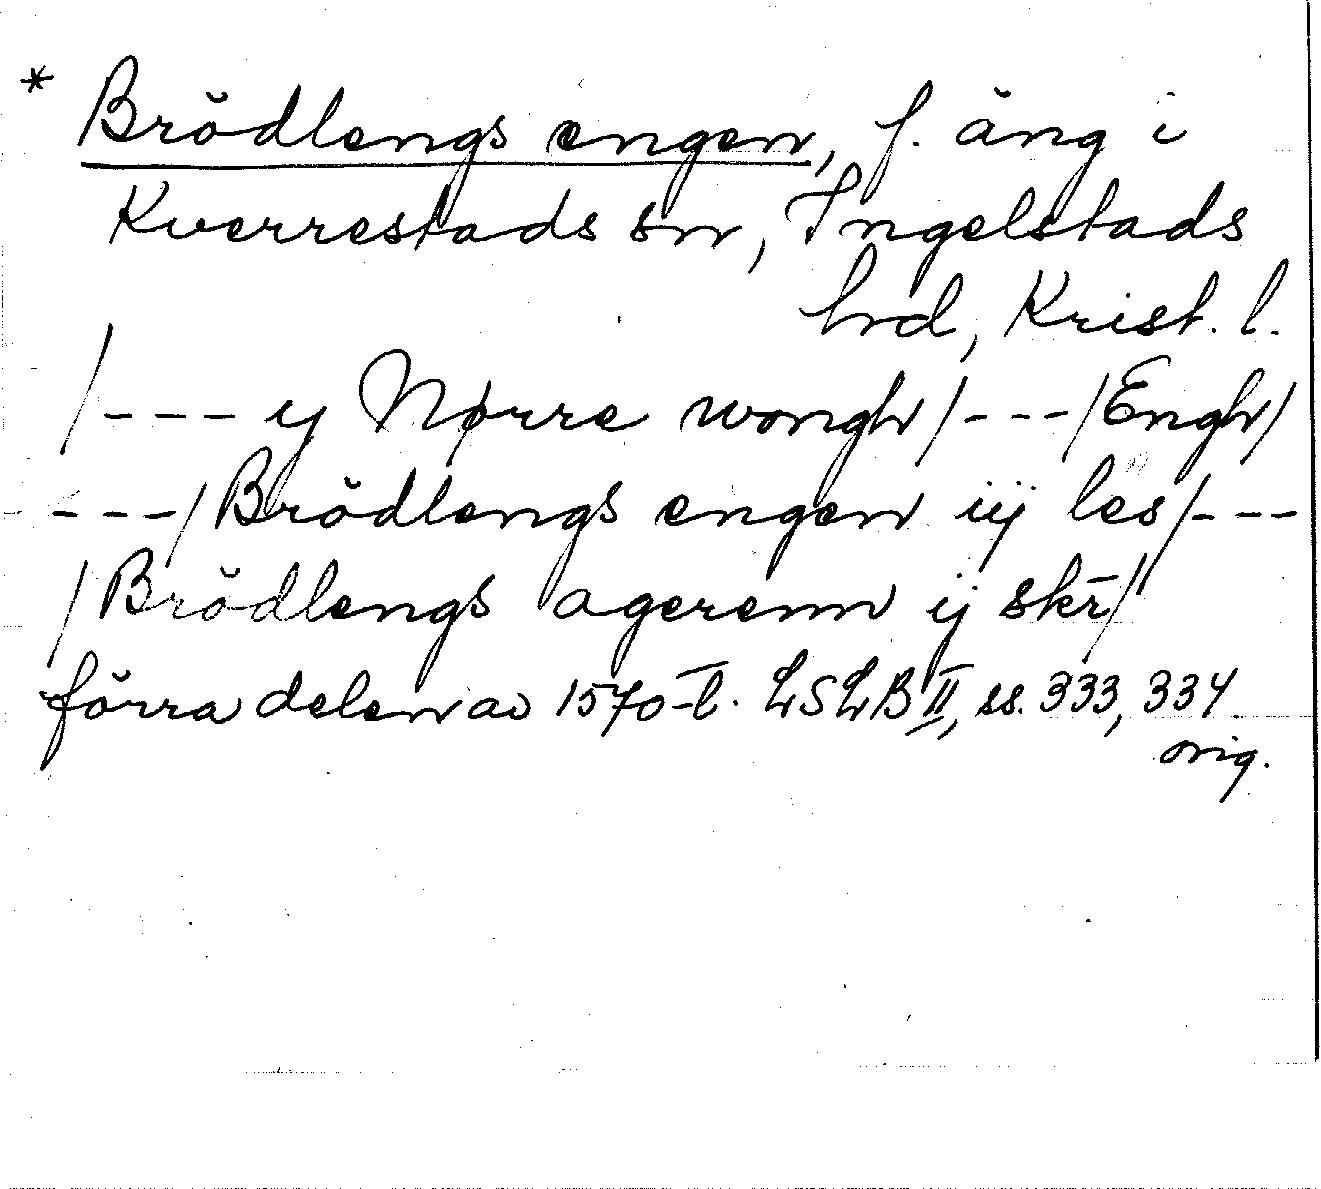 * Brödlengs engen, f. äng i
Kverrestads sn, Ingelstads
hd, Krist. l.
/--- ij Nørre wongh/---/Engh/
---/Brödlengs engen iij les/---
/Brödlengs agerenn ij skr̄/
förra delen av 1570-t. LSLB II, ss. 333, 334
orig.